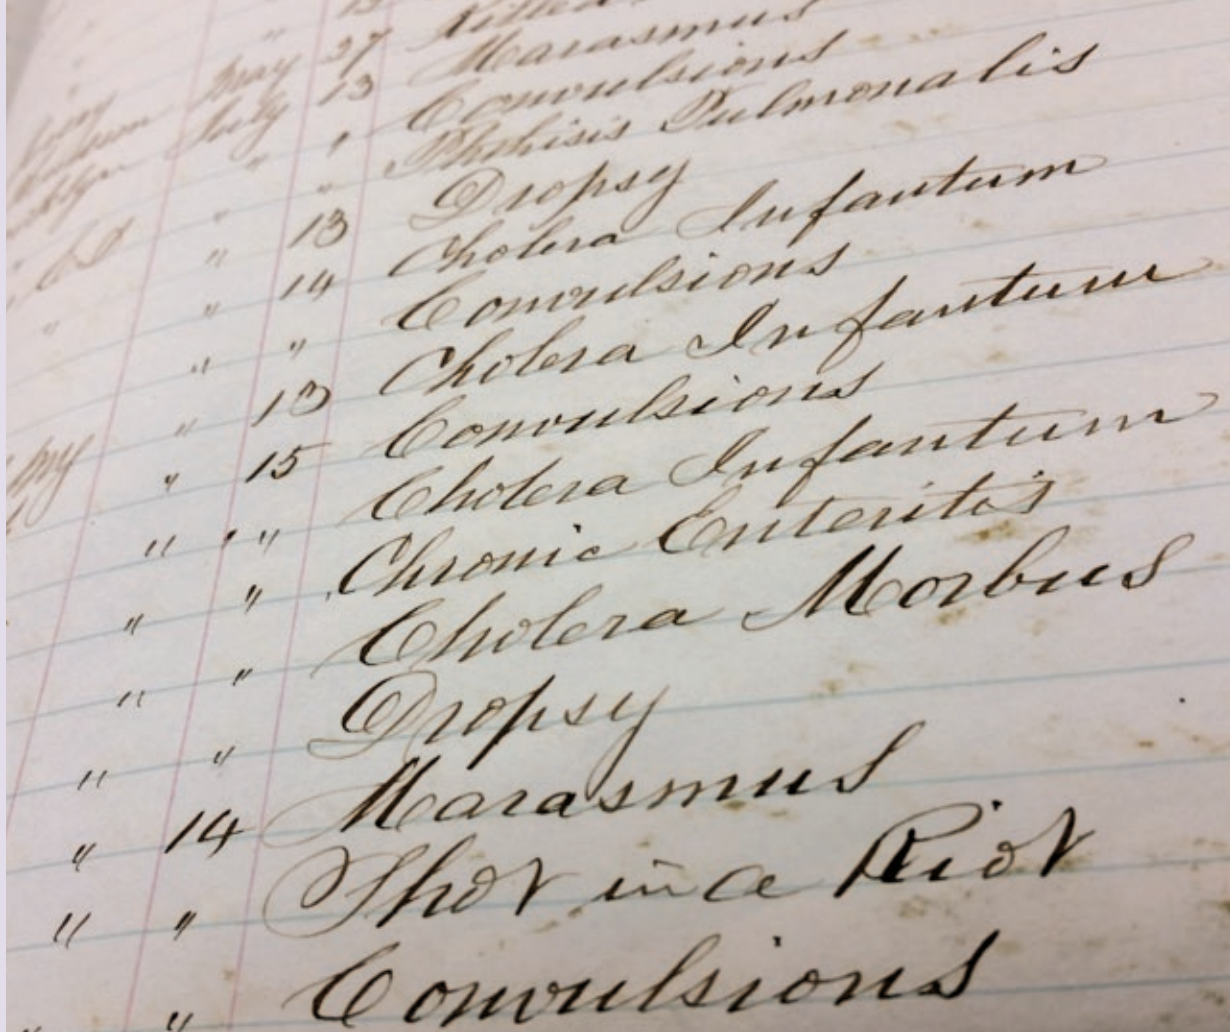 Killed
May 27 Marasmus
July 13 Convulsions
" " Phthisis Pulmonalis
" " Dropsy
" 13 Cholera Infantum
" 14 Convulsions
" " Cholera Infantum
" 13 Convulsions
" 15 Cholera Infantum
" " Chronic Enteritis
" " Cholera Morbus
" " Dropsy
" " Marasmus
" 14 Shot in a Riot
" " Convulsions